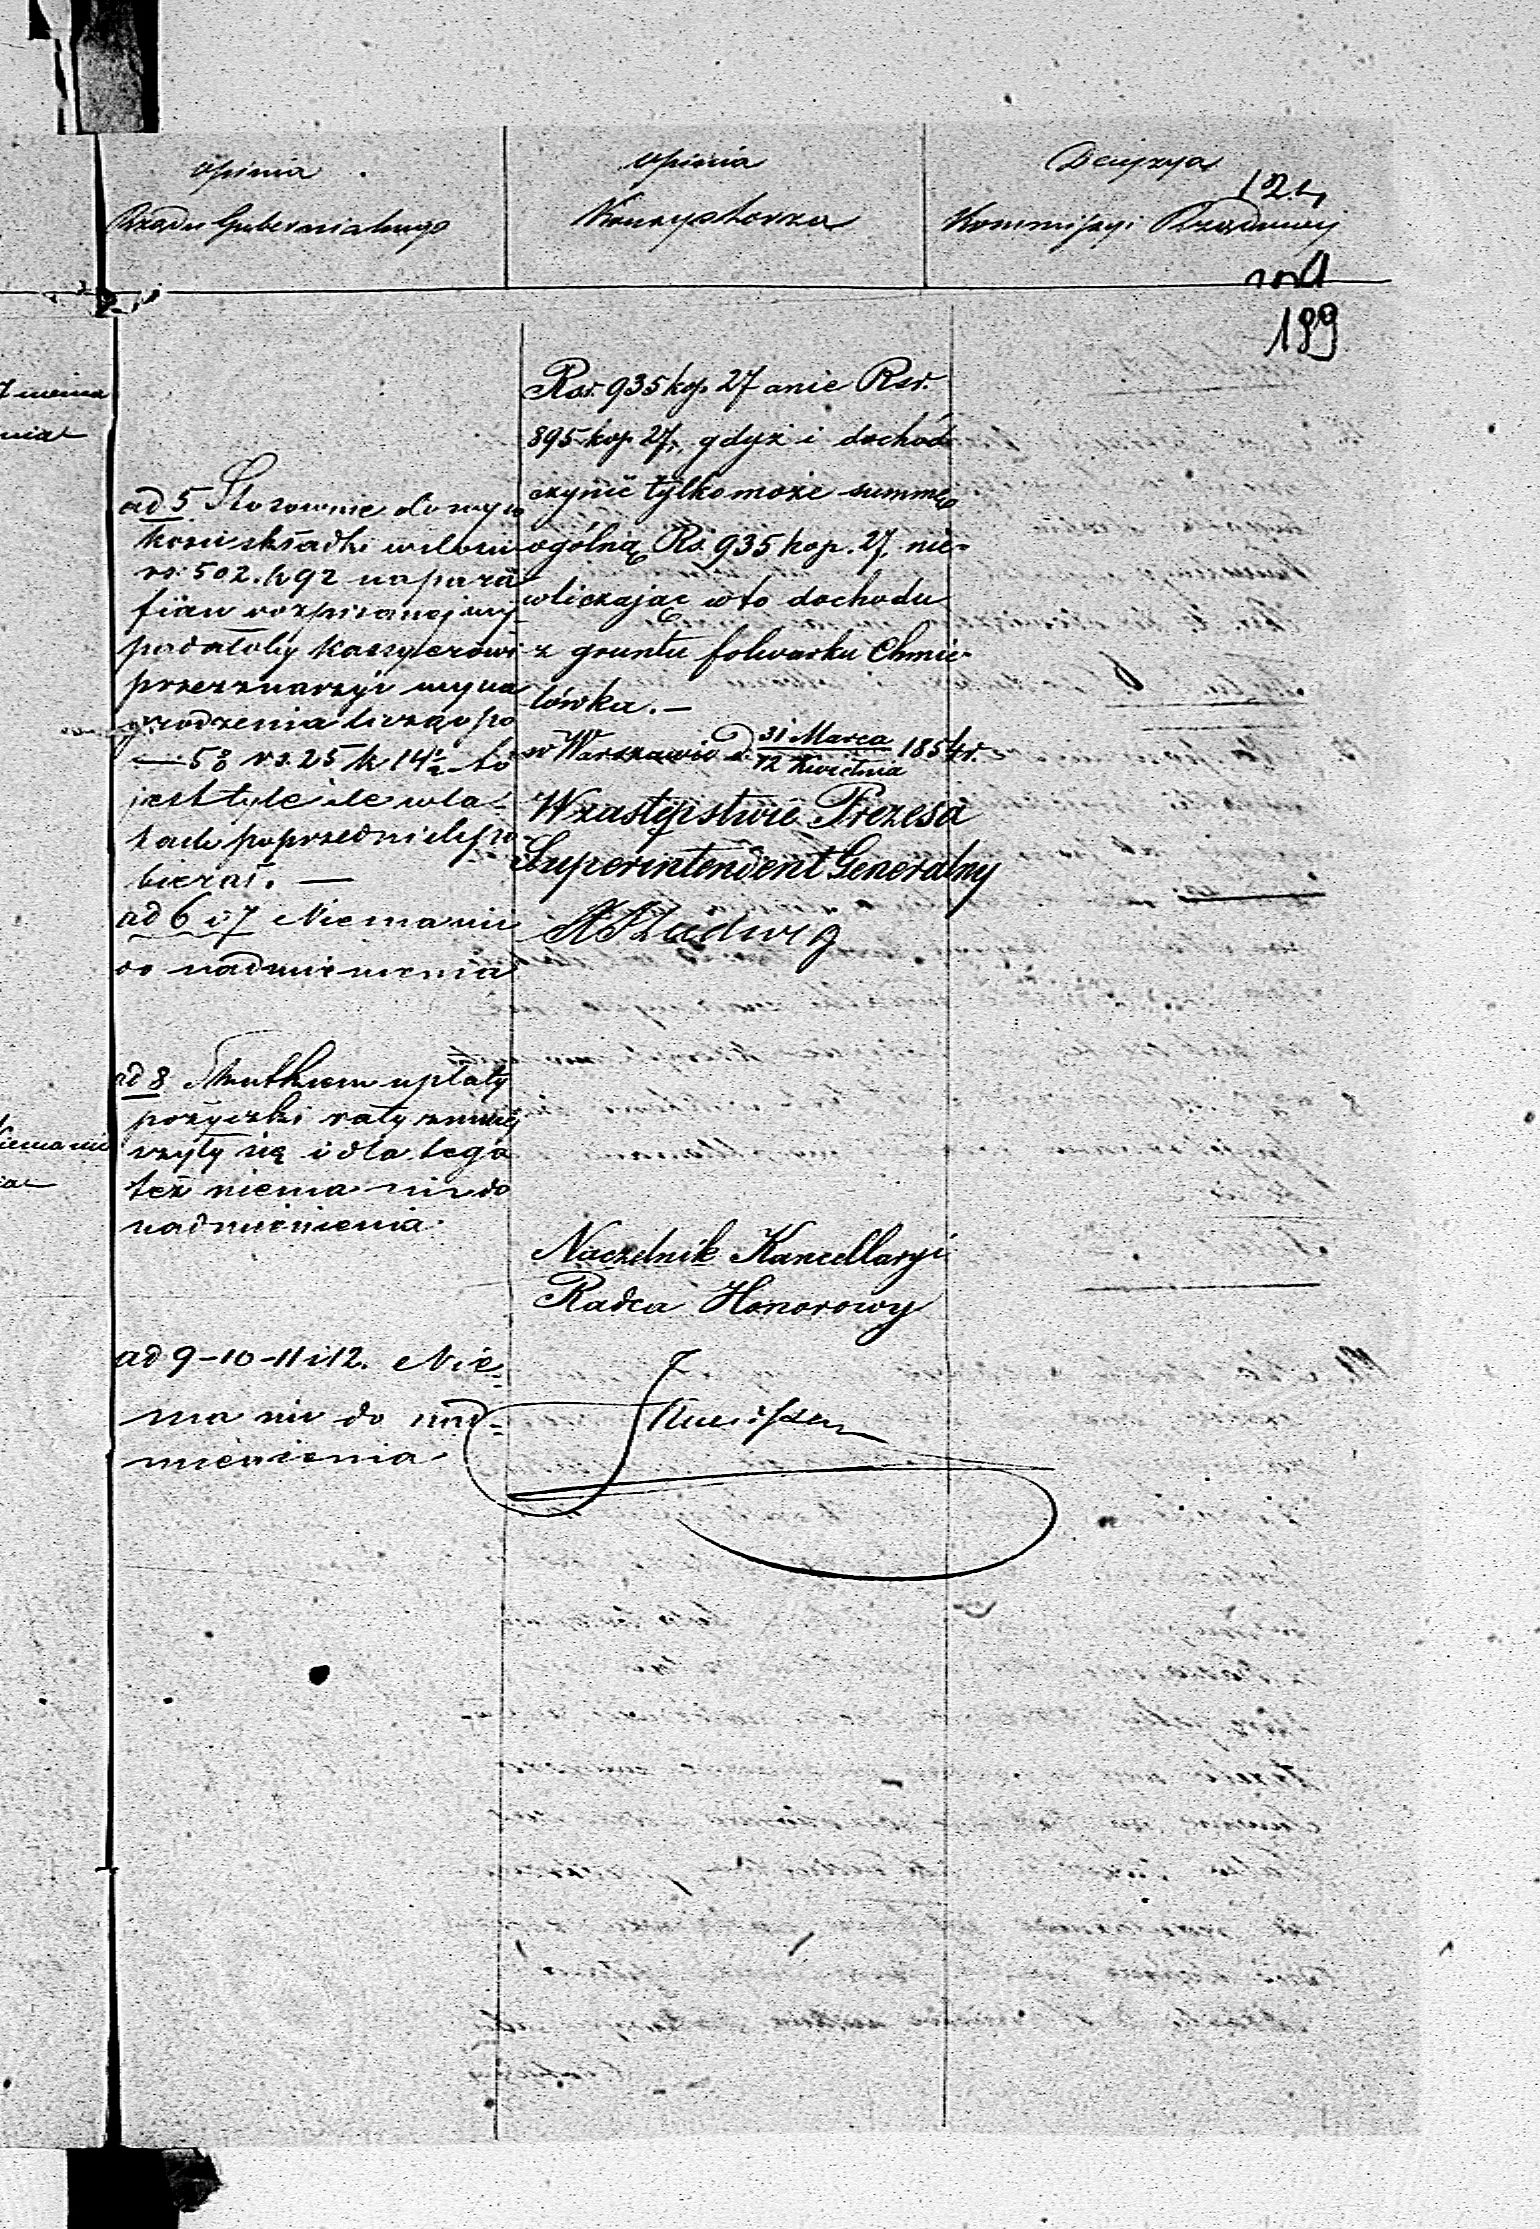 Opinia
Rządu Gubernialnego
Opinia
Konsystorza
Decyzya
124
Kommissyi Rządowej
199
ad 5 Stosownie do wyso
kości składki w ilości
rs: 502. k 92 na para
fian rozpisanej wy
padałoby Kassyerowi
przeznaczyć wyna
grodzenia licząc po
— 5% rs. 25 k 14½ to
jest tyle ile w la
tach poprzednich po
bierał. —
ad 6 i 7 Niema nic
do nadmienienia
ad 8 Skutkiem upłaty
pożyczki raty zmniej
szyły się i dla tego
też niema nic do
nadmienienia.
ad 9-10-11 i 12. Nie
ma nic do nad-
mienienia.
Rsr. 935 kop 27 a nie Rsr.
895 kop 27, gdyż i dochód
czynić tylko może summę
ogólną Rs. 935 kop. 27, nie-
wliczając w to dochodu
z gruntu folwarku Chmie-
lówka. —
w Warszawie d. 31 Marca 1854 r.
12 Kwietnia
W zastępstwie Prezesa
Superintendent Generalny
Ludwig
Naczelnik Kancellaryi
Radca Honorowy
niema